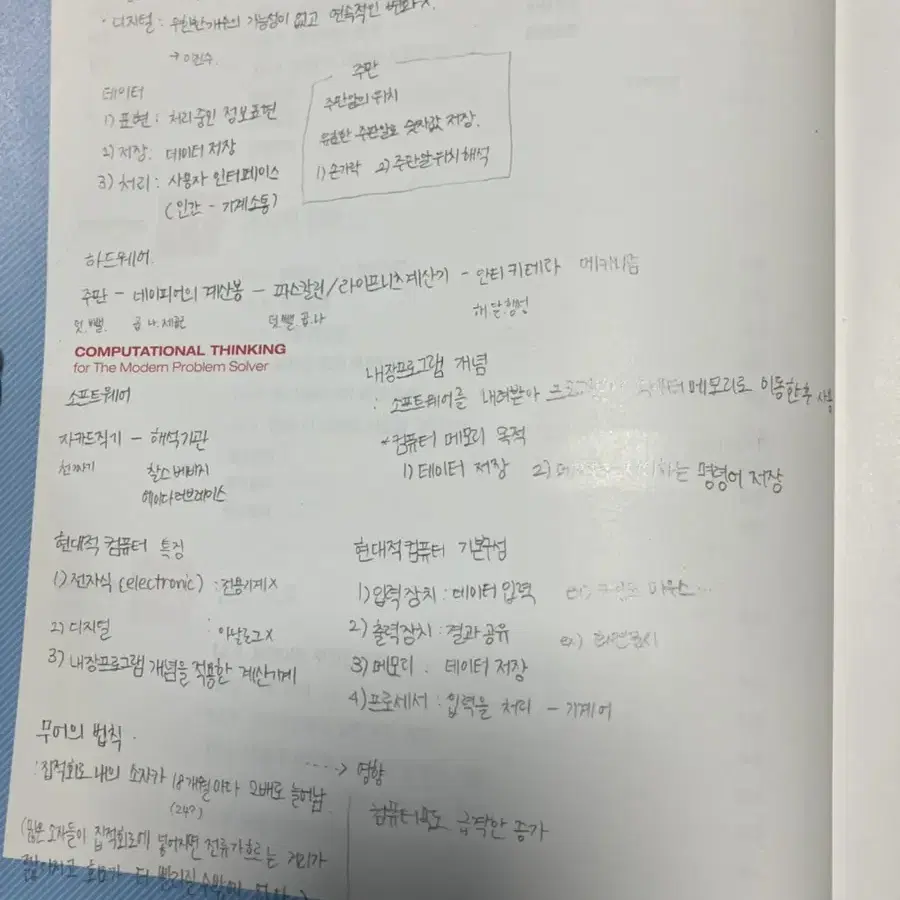 · 디지털 : 무한한 개유의 가능성이 없고 연속적인 변화 X.
→ 이진수.
데이터
1) 표현 : 처리중인 정보표현
2) 저장. 데이터 저장
3) 처리 : 사용자 인터페이스
(인간 - 기계소통)
주판
주판알의 위치
유한한 주판알로 숫자값 저장.
1) 손가락 2) 주판알 위치 해석
하드웨어.
주판 - 네이피어의 계산봉 - 파스칼린/라이프니츠 계산기 - 안티키테라 메커니즘
덧.뺄. 곱.나.제곱 덧.뺄.곱.나 해.달.행성
COMPUTATIONAL THINKING
for The Modern Problem Solver
소프트웨어
자카드직기 - 해석기관
천짜기 찰스 배비지
에이다 러브레이스
내장프로그램 개념
: 소프트웨어를 내려받아 메모리로 이동한 후 사용
* 컴퓨터 메모리 목적
1) 데이터 저장 2) 하는 명령어 저장
현대적 컴퓨터 특징
1) 전자식 (electronic) : 전용기계 X
2) 디지털 : 아날로그 X
3) 내장프로그램 개념을 적용한 계산기계
현대적 컴퓨터 기본구성
1) 입력장치 : 데이터 입력 ex) 마우스...
2) 출력장치 : 결과 공유 ex) 화면표시
3) 메모리 . 데이터 저장
4) 프로세서 : 입력을 처리 - 기계어
무어의 법칙.
: 집적회로 내의 소자가 18개월마다 2배로 늘어남
(24?)
소자들이 집적회로에 넣어지면 전류가 흐르는 거리가
짧아지고 더 빨라질 수밖에
----> 영향
컴퓨터 속도 급격한 증가